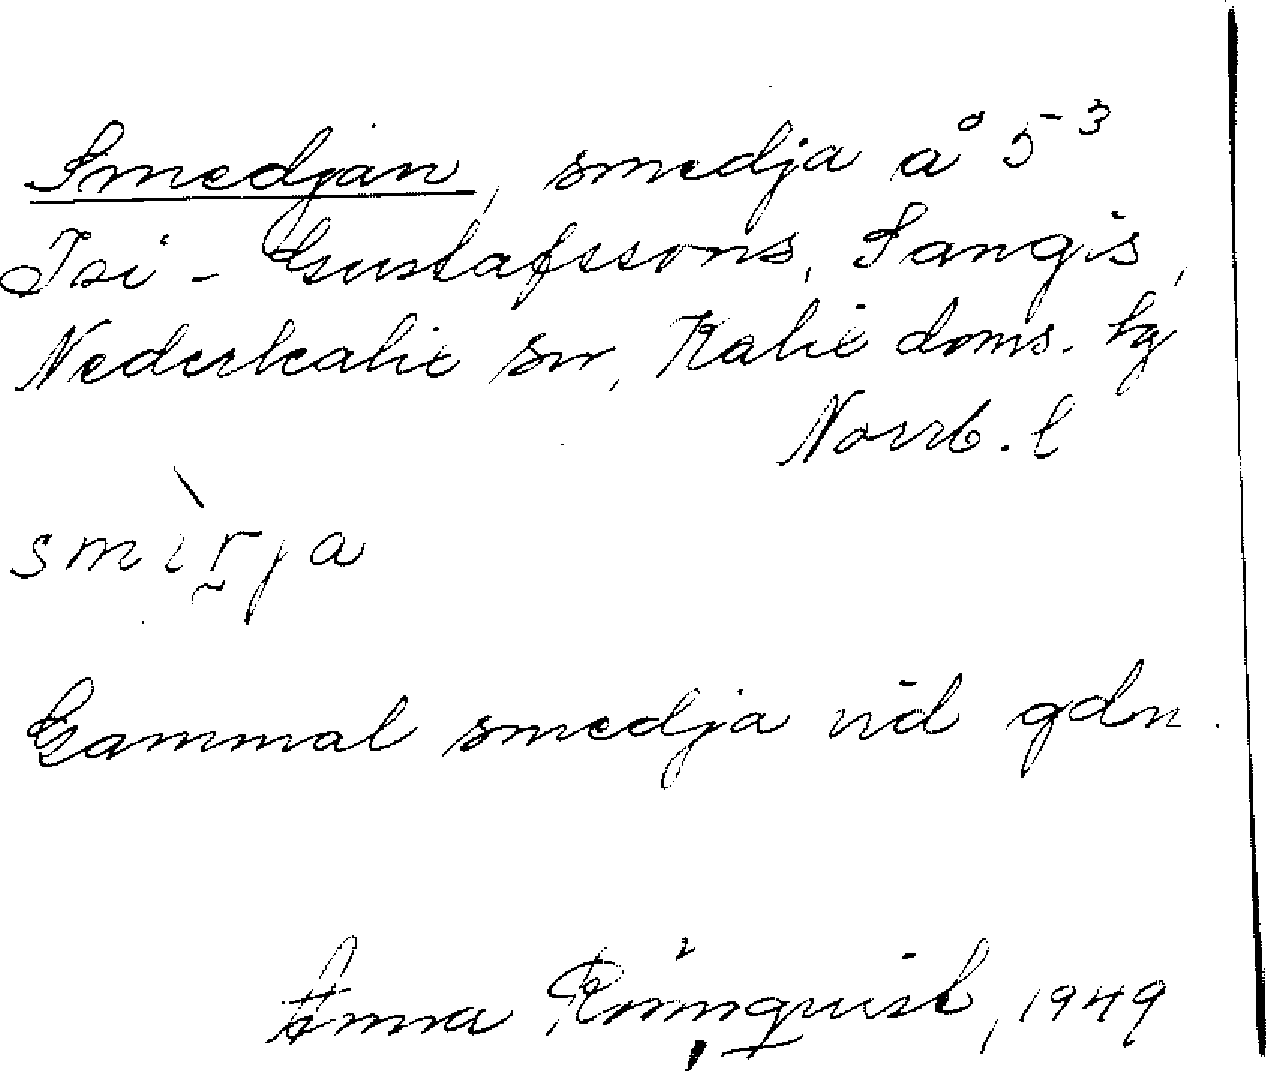 Smedjan, smedja å 5³
Isi - Gustafssons, Sangis,
Nederkalix sn, Kalix doms. hg
Norrb. l
smìrja
Gammal smedja vid gdn.
Anna Rönnqvist, 1949